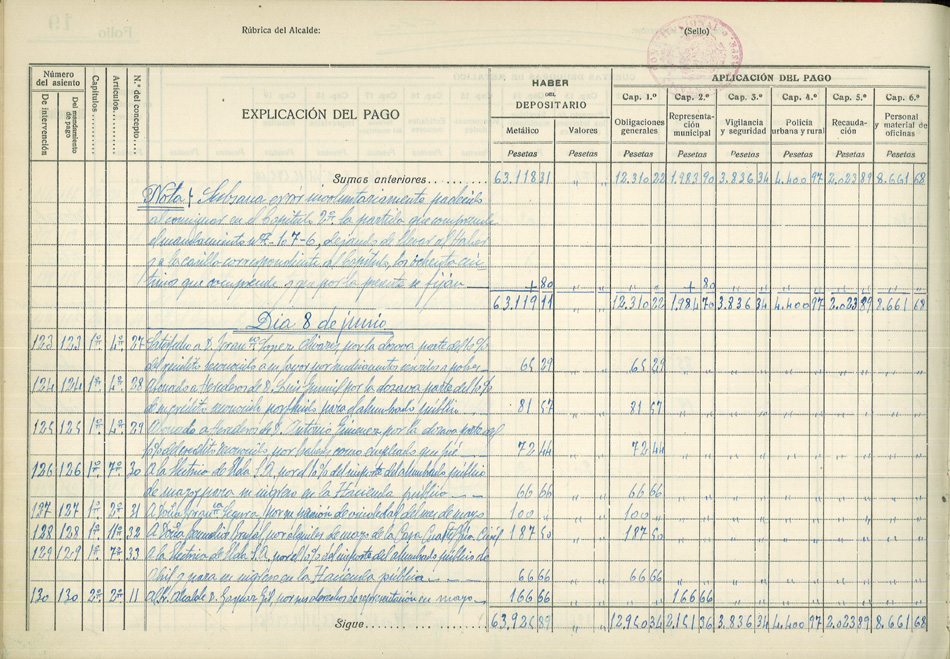 Rúbrica del Alcalde:
(Sello)
Número del asiento
De intervención
Del mandamiento de pago
Capítulos
Artículos
N.º del concepto
EXPLICACIÓN DEL PAGO
HABER DEL DEPOSITARIO
Metálico
Valores
Pesetas
Pesetas
APLICACIÓN DEL PAGO
Cap. 1.º
Cap. 2.º
Cap. 3.º
Cap. 4.º
Cap. 5.º
Cap. 6.º
Obligaciones generales
Representación municipal
Vigilancia y seguridad
Policía urbana y rural
Recaudación
Personal y material de oficinas
Pesetas
Pesetas
Pesetas
Pesetas
Pesetas
Pesetas
Sumas anteriores 63.118 31 " " 12.310 22 1.983 90 3.836 34 4.400 97 2.023 89 8.661 68
Nota error involuntariamente padecido
al consignar en el Capítulo 2º la partida que comprende
el mandamiento nº 107-6, dejando de llevar al Haber
y a la casilla correspondiente al Capítulo, los ochenta cén-
timos que comprende y que por la presente se fijan + 80 + 80
63.119 11 " " 12.310 22 1.984 70 3.836 34 4.400 97 2.023 89 8.661 68
Dia 8 de junio
123 123 1º 4º 27 Satisfecho a D. Franco Lopez Olivares, por la dozava parte del 10%
del crédito reconocido a su favor por medicamentos 65 29 " " 65 29
124 124 1º 4º 28 Abonado a Herederos de D. Luis por la dozava parte del 10%
de su crédito reconocido por fluido para el alumbrado público 81 57 " " 81 57
125 125 1º 4º 29 Abonado a herederos de D. Antonio Gimenez por la dozava parte del
10% del crédito reconocido, por haberes como empleado que fué 72 44 " " 72 44
126 126 1º 7º 30 A la Electrica de Elda S.A. por el 10% del importe del alumbrado público
de mayo para su ingreso en la Hacienda pública 66 66 " " 66 66
127 127 1º 2º 31 A Doña Franca Segura, por su pensión de viudedad del mes de mayo 100 " " " 100 "
128 128 1º 11º 32 A Doña por alquiler de mayo de la Casa Cuartel Gria Civil 187 50 " " 187 50
129 129 1º 7º 33 A la Electrica de Elda S.A. por el 10% del importe del alumbrado público de
Abril y para su ingreso en la Hacienda pública 66 66 " " 66 66
130 130 2º 2º 11 Al Sr. Alcalde D. Gaspar Gil, por sus derechos de representación en mayo 166 66 " " 166 66
Sigue 63.925 89 " " 12.950 34 2.151 36 3.836 34 4.400 97 2.023 89 8.661 68